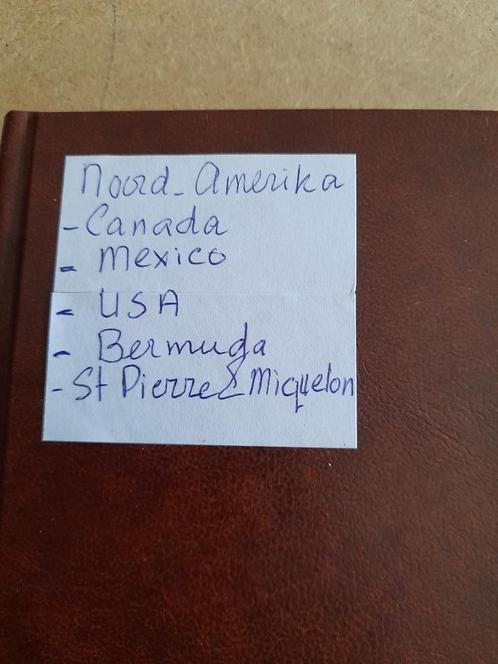 Noord-Amerika
- Canada
- Mexico
- USA
- Bermuda
- St Pierre & Miquelon